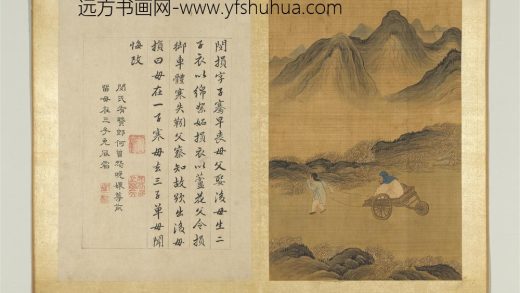 远方书画网-www.yfshuhua.com
閔損字子騫早喪母父娶後母生二
子衣以綿絮妬損衣以蘆花父令損
御車體寒失靷父察知故欲出後母
損曰母在一子寒母去三子單母聞
悔改
閔氏有賢郎何曾怨晚娘尊前
留母在三子免風霜